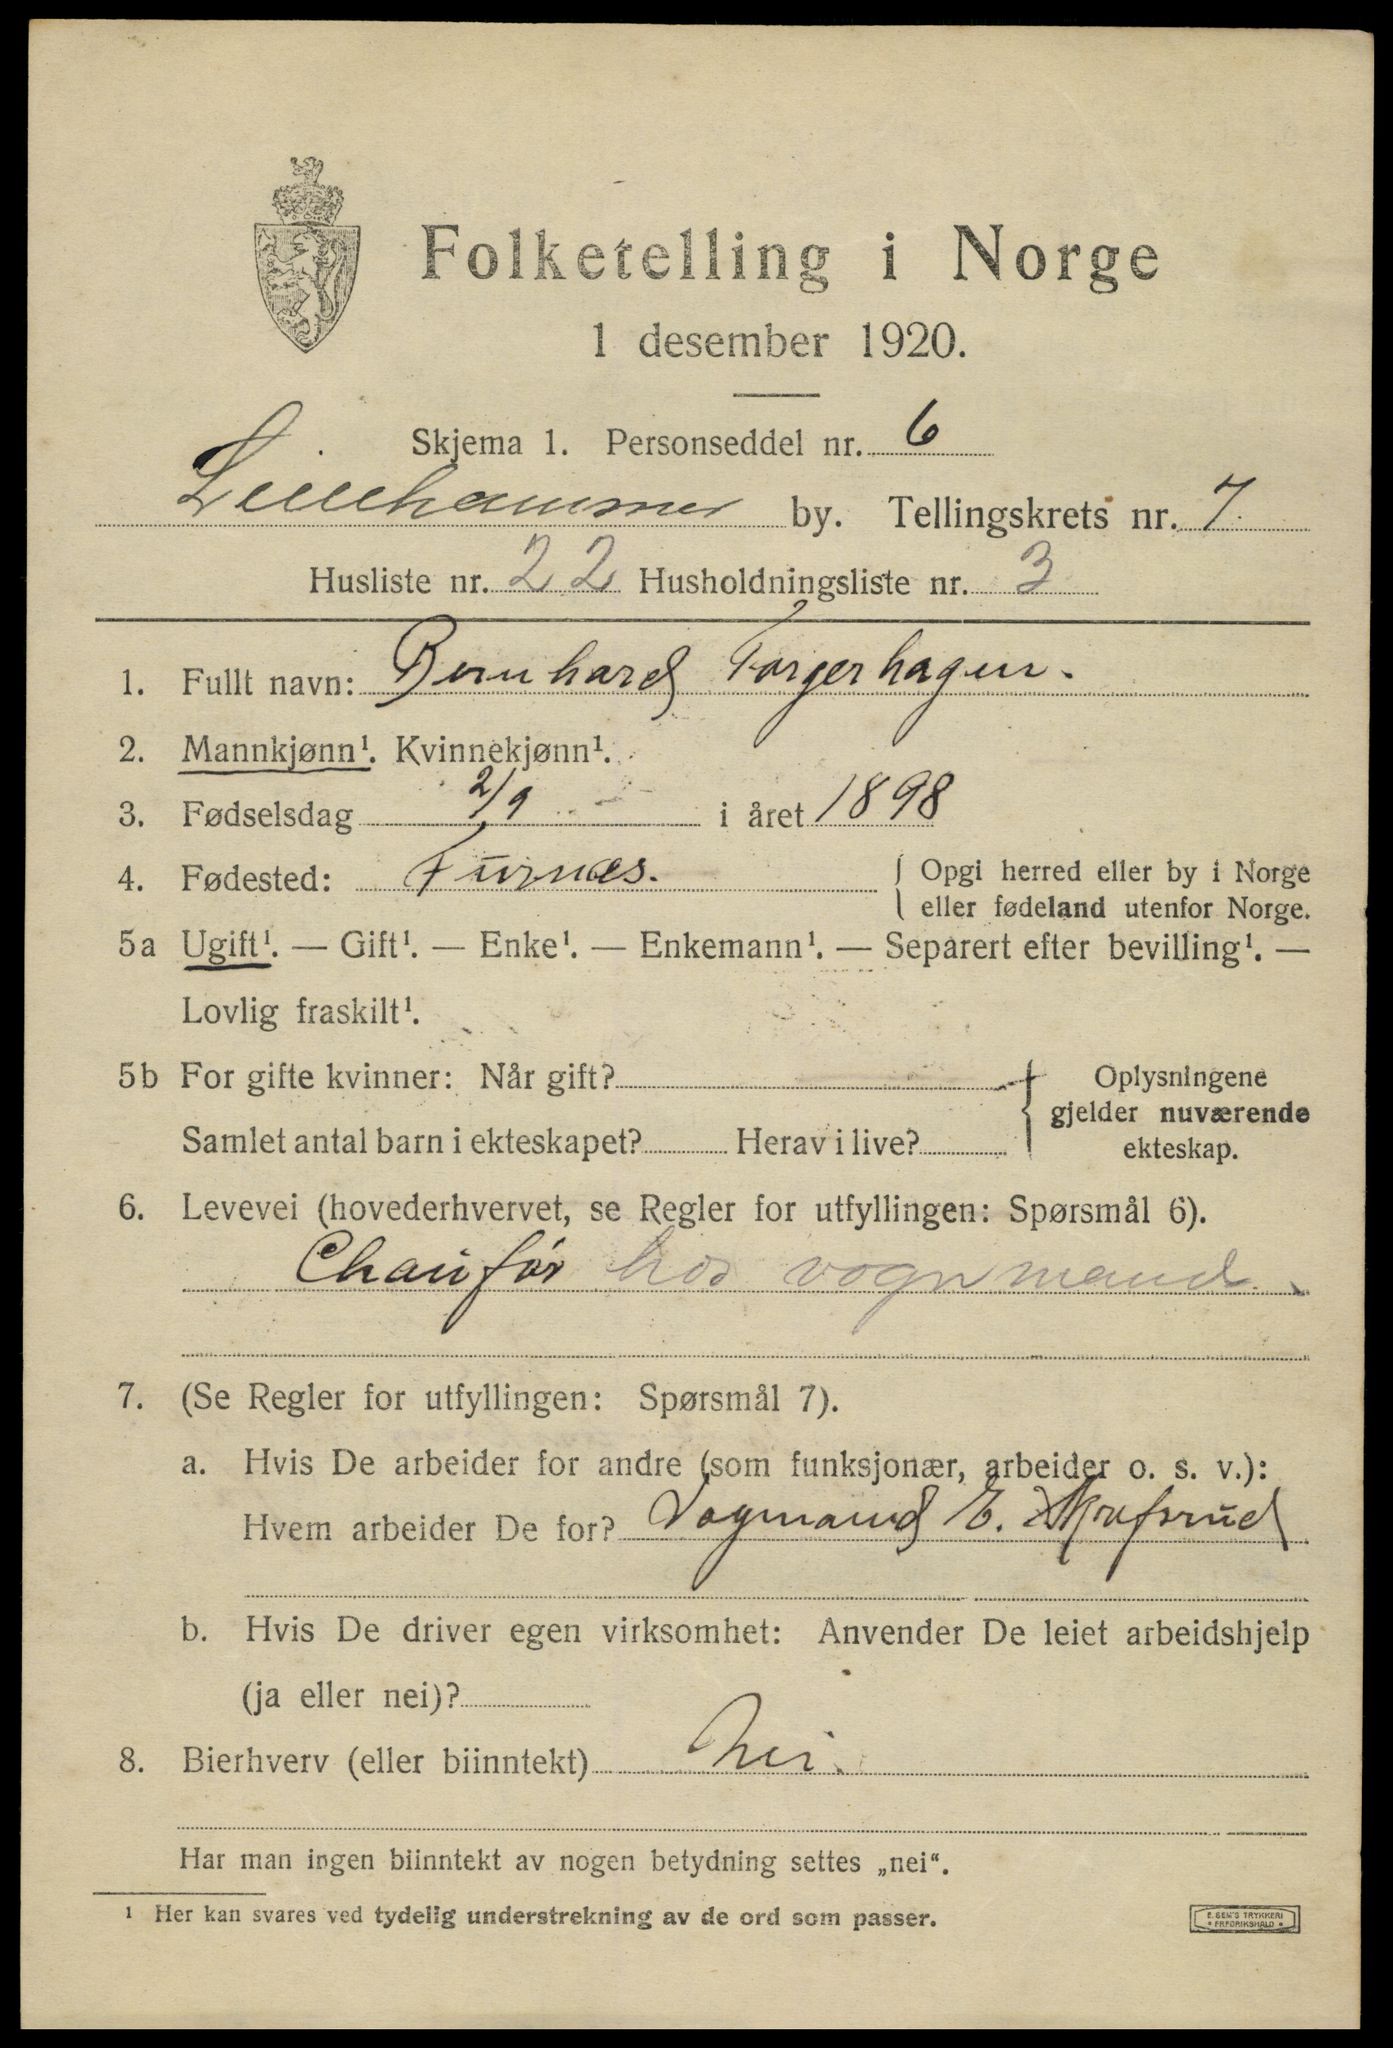 Folketelling i Norge
1 desember 1920.
Skjema 1. Personseddel nr. 6
Lillehammer by. Tellingskrets nr. 7
Husliste nr. 22 Husholdningsliste nr. 3
1. Fullt navn: Bernhard Torgerhagen.
2. Mannkjønn¹. Kvinnekjønn¹.
3. Fødselsdag 2/9 i året 1898
4. Fødested: Furnæs. { Opgi herred eller by i Norge
eller fødeland utenfor Norge.
5a Ugift¹. — Gift¹. — Enke¹. — Enkemann¹. — Separert efter bevilling¹. —
Lovlig fraskilt¹.
5b For gifte kvinner: Når gift? { Oplysningene
gjelder nuværende
Samlet antal barn i ekteskapet? Herav i live? ekteskap.
6. Levevei (hovederhvervet, se Regler for utfyllingen: Spørsmål 6).
Chaufför hos vognmand
7. (Se Regler for utfyllingen: Spørsmål 7).
a. Hvis De arbeider for andre (som funksjonær, arbeider o. s. v.):
Hvem arbeider De for? Vogmand E.
b. Hvis De driver egen virksomhet: Anvender De leiet arbeidshjelp
(ja eller nei)?
8. Bierhverv (eller biinntekt) Nei.
Har man ingen biinntekt av nogen betydning settes „nei“.
¹ Her kan svares ved tydelig understrekning av de ord som passer.
E. SEM'S TRYKKERI
• FREDRIKSHALD •